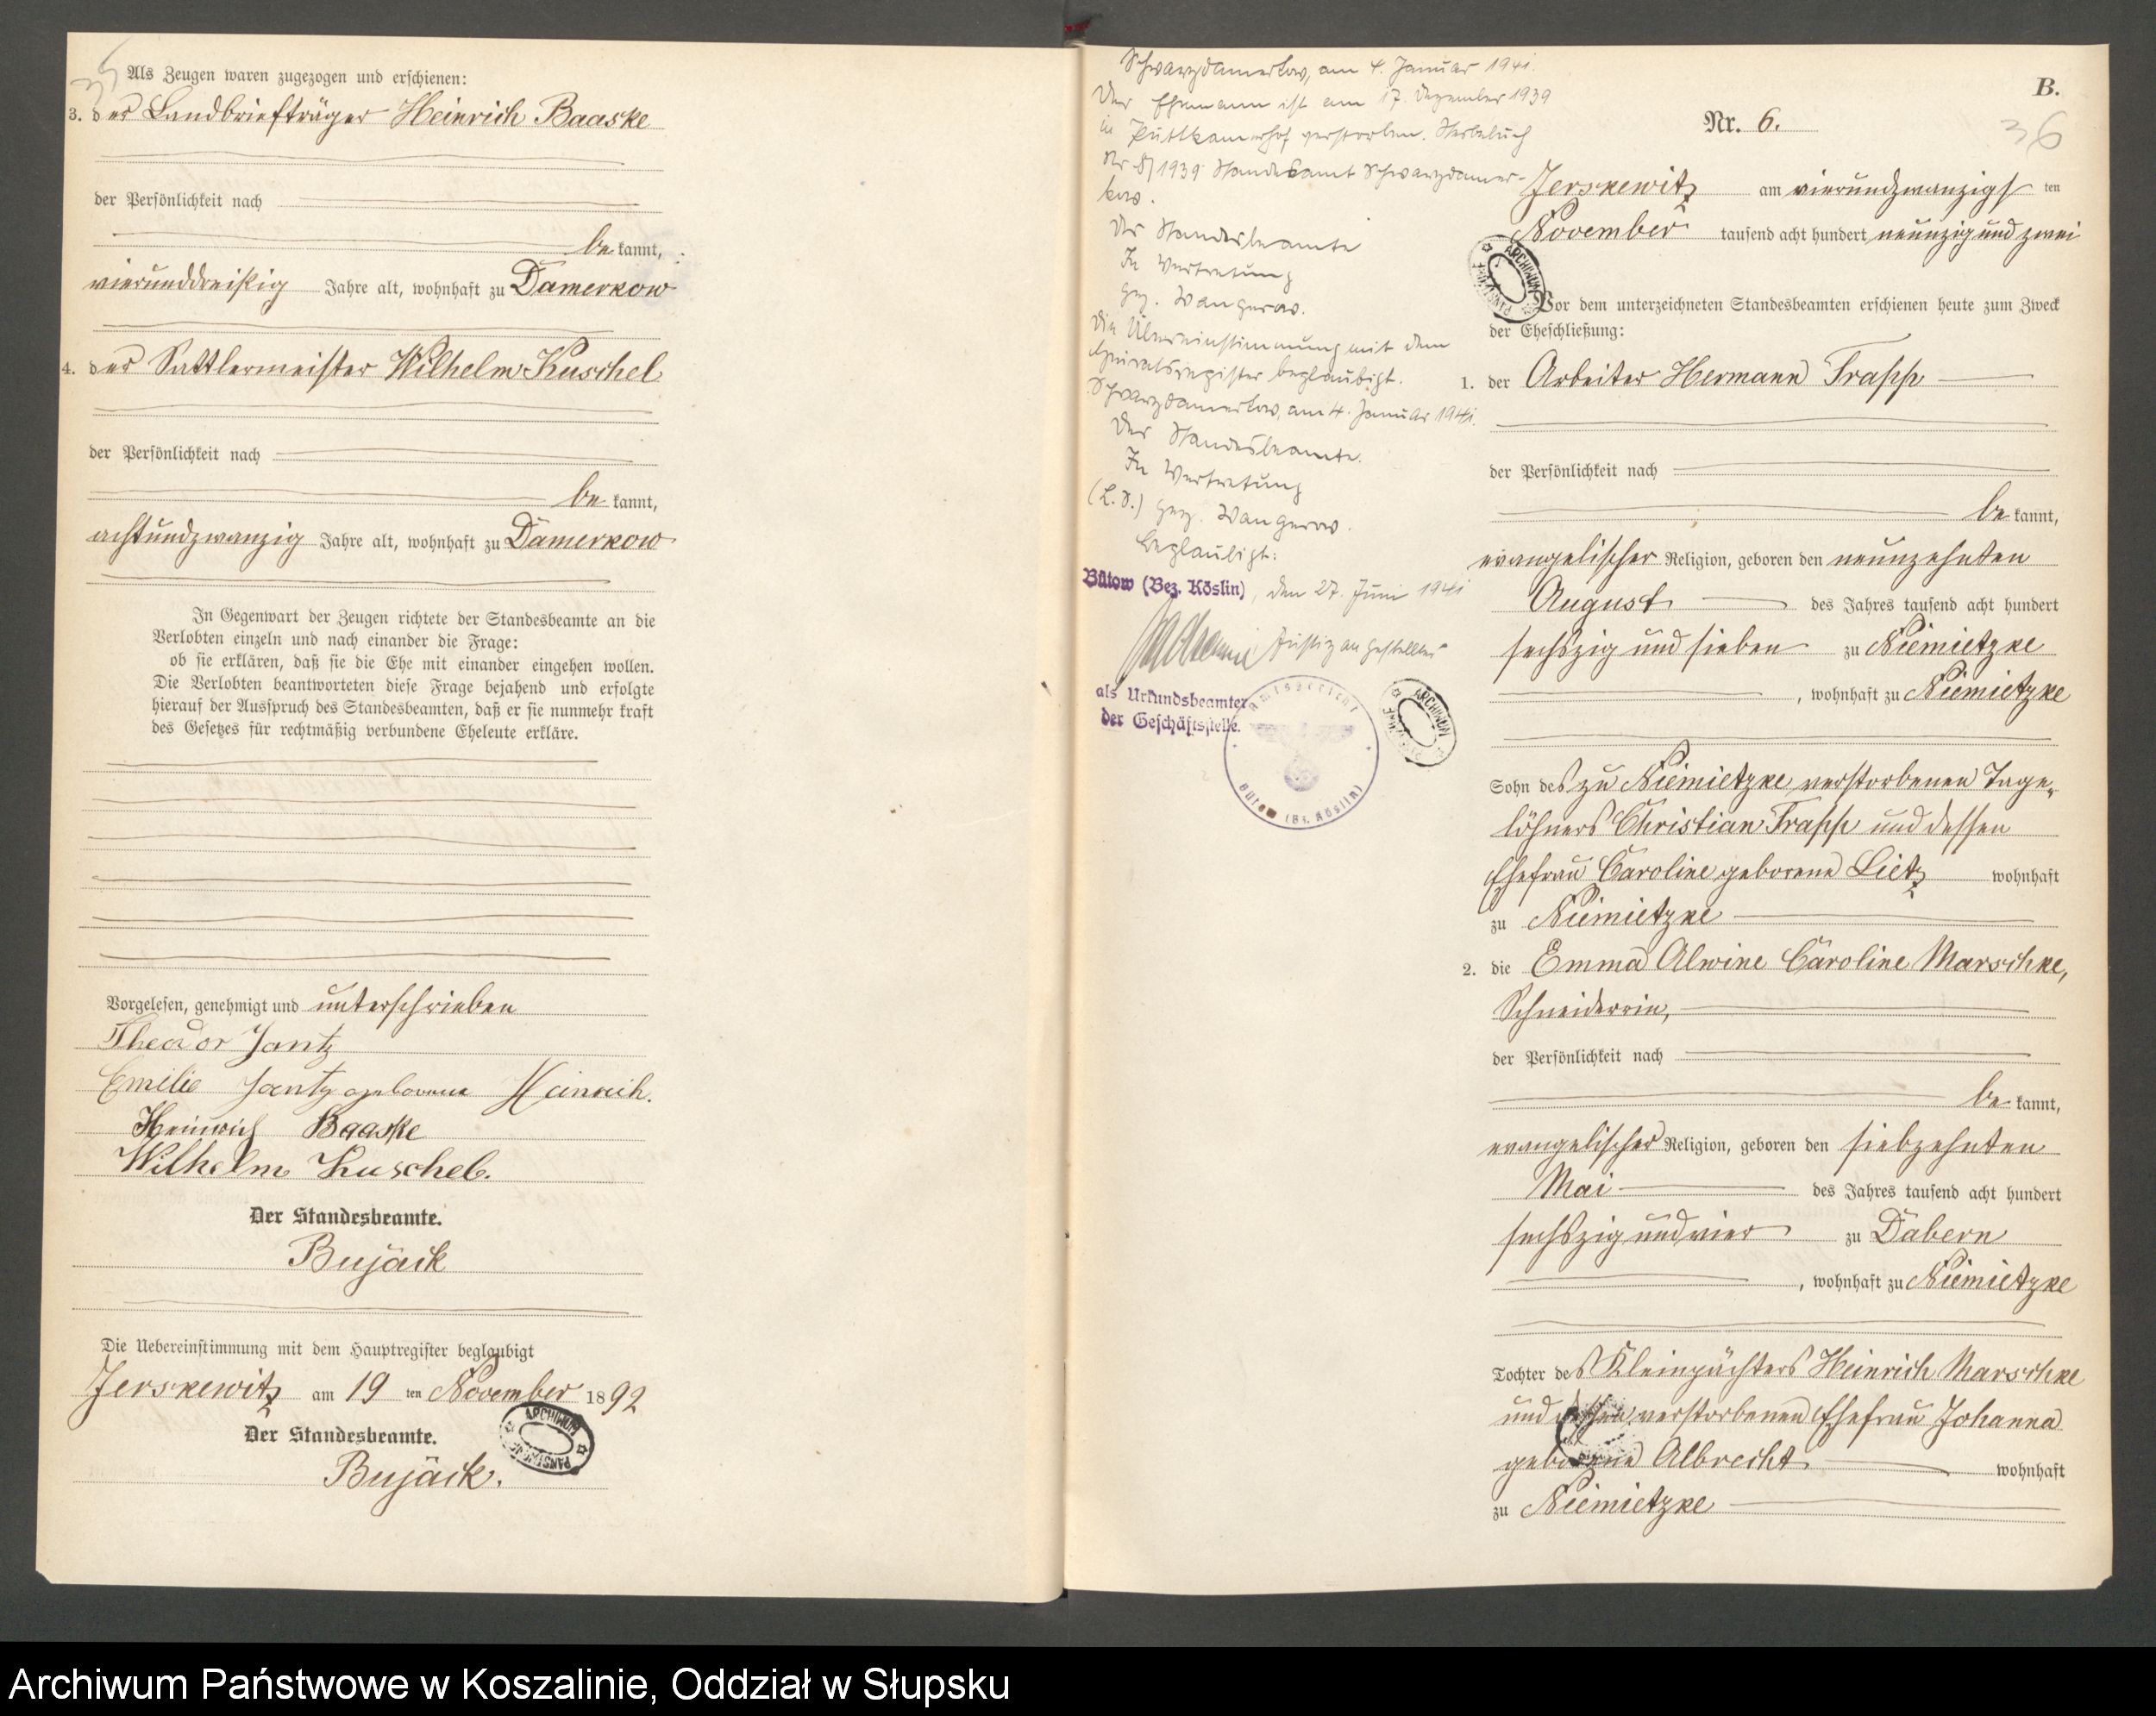 35
Als Zeugen waren zugezogen und erschienen:
3. der Landbriefträger Heinrich Baaske
der Persönlichkeit nach
be kannt,
vierunddreißig Jahre alt, wohnhaft zu Damerkow
4. der Sattlermeister Wilhelm Kuschel
der Persönlichkeit nach
be kannt,
achtundzwanzig Jahre alt, wohnhaft zu Damerkow
In Gegenwart der Zeugen richtete der Standesbeamte an die
Verlobten einzeln und nach einander die Frage:
ob sie erklären, daß sie die Ehe mit einander eingehen wollen.
Die Verlobten beantworteten diese Frage bejahend und erfolgte
hierauf der Ausspruch des Standesbeamten, daß er sie nunmehr kraft
des Gesetzes für rechtmäßig verbundene Eheleute erkläre.
Vorgelesen, genehmigt und unterschrieben
Theodor Jantz
Emilie Jantz geborene Heinrich.
Heinrich Baaske
Wilhelm Kuschel.
Der Standesbeamte.
Bujack
Die Uebereinstimmung mit dem Hauptregister beglaubigt
Jerskewitz am 19 ten November 1892
Der Standesbeamte.
Bujack.
ARCHIWUM PAŃSTWOWE
Schwarzdamerkow, am 4. Januar 1941.
Der Ehemann ist am 17. Dezember 1939
in Puttkamerhof verstorben. Sterbebuch
Nr 8/1939 Standesamt Schwarzdamer-
kow.
Der Standesbeamte
In Vertretung
gez. Wangerow.
Die Übereinstimmung mit dem
Heiratsregister beglaubigt.
Schwarzdamerkow, am 4. Januar 1941.
Der Standesbeamte.
In Vertretung
(L.S.) gez. Wangerow.
Beglaubigt:
Bütow (Bez. Köslin), den 27. Juni 1941
Justizangestellter
als Urkundsbeamter
der Geschäftsstelle.
Amtsgericht
Bütow (Bz. Köslin)
ARCHIWUM PAŃSTWOWE
B.
Nr. 6.
36
Jerskewitz am vierundzwanzigs ten
November tausend acht hundert neunzig und zwei
ARCHIWUM PAŃSTWOWE
Vor dem unterzeichneten Standesbeamten erschienen heute zum Zweck
der Eheschließung:
1. der Arbeiter Hermann Trapp
der Persönlichkeit nach
be kannt,
evangelischer Religion, geboren den neunzehnten
August des Jahres tausend acht hundert
sechszig und sieben zu Niemietzke
, wohnhaft zu Niemietzke
Sohn des zu Niemietzke verstorbenen Tage-
löhners Christian Trapp und dessen
Ehefrau Caroline geborene Lietz wohnhaft
zu Niemietzke
2. die Emma Alwine Caroline Marschke,
Schneiderin,
der Persönlichkeit nach
be kannt,
evangelischer Religion, geboren den siebzehnten
Mai des Jahres tausend acht hundert
sechszig und vier zu Dabern
, wohnhaft zu Niemietzke
Tochter des Kleinpächters Heinrich Marschke
und dessen verstorbenen Ehefrau Johanna
geborene Albrecht wohnhaft
zu Niemietzke
Archiwum Państwowe w Koszalinie, Oddział w Słupsku